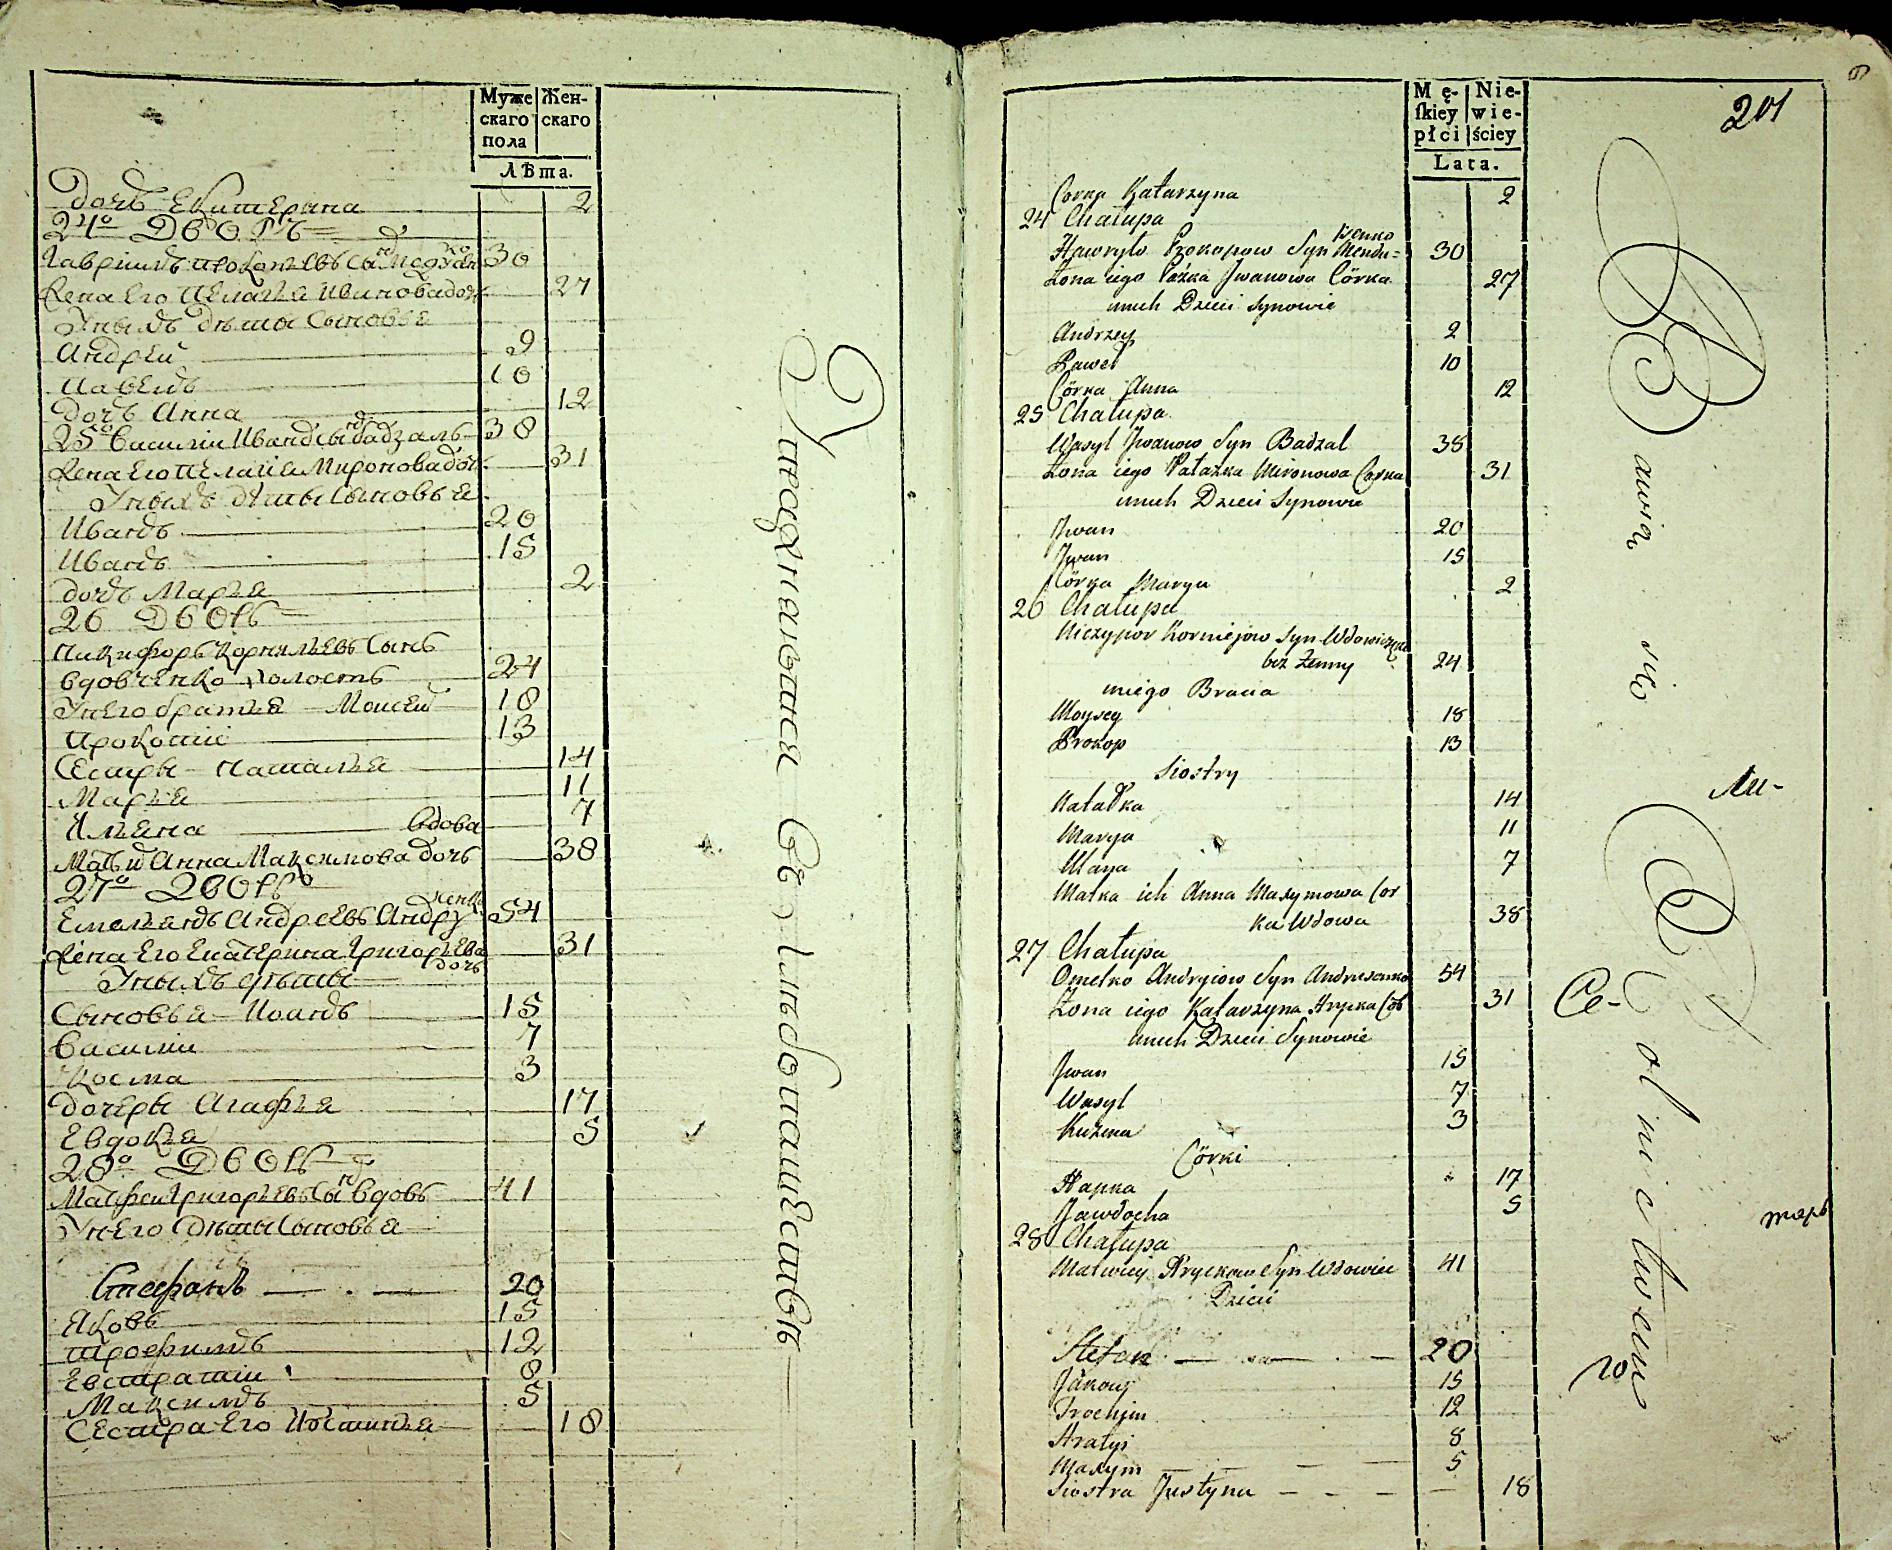 Муже
скаго
пола
Жен-
скаго
Лѣта.
Дочь Екатерина 2
24º Дворъ
Гаврiилъ Прокопьевъ сынъ 30
Жена Его Пелагея Иванова дочь 27
У ныхъ дѣты сыновья
Андрей 9
Павелъ 10
Дочь Анна 12
25º Василiи Ивановъ сынъ Бадзалъ 38
Жена Его Пелагея Миронова дочь 31
У ныхъ дѣты сыновья
Иванъ 20
Иванъ 15
дочь Марья 2
26 Дворъ
Никифоръ Корнильевъ сынъ
вдовченко холостъ 24
У нЕго братья Моисей 18
Прокопiи 13
Сестры Наталья 14
Марья 11
Ульяна 7
вдова
Мать их Анна Максимова дочь 38
27º Дворъ
Емельянъ Андреевъ Андрусенко 54
Жена Его Екатерина Григорьева дочь 31
У ныхъ дѣты
Сыновья Иванъ 15
Василiи 7
Косма 3
дочеры Агафья 17
Евдокья 5
28º Дворъ
Матфеи Григорьевъ сынъ вдовъ 41
У нЕго дѣты сыновья
Стефанъ 20
Яковъ 15
Трофимъ 12
Евстратiи 8
Максимъ 5
Сестра Его Иустинья 18
Упражнаются въ хлѣбопашествѣ
201
Mę-
ſkiey
płci
Nie-
wie-
ściey
Lata.
Corka Katarzyna 2
24 Chałupa
Hawryło Prokopow Syn 30
Żona iego Paźka Jwanowa Córka 27
unich Dzieci Synowie
Andrzey 2
Paweł 10
Córka Anna 12
25 Chałupa
Wasyl Jwanow Syn Badzal 38
Żona iego Pałażka Mironowa Corka 31
unich Dzieci Synowie
Jwan 20
Jwan 15
Córka Marya 2
26 Chałupa
Niczypor Korniejow Syn Wdowiczenko
bez Żenny 24
uniego Bracia
Moysey 18
Prokop 13
Siostry
Natałka 14
Marya 11
Ulana 7
Matka ich Anna Maxymowa Cor
ka Wdowa 38
27 Chałupa
Omelko Andryiow Syn Andrusenko 54
Żona iego Katarzyna Hrycka Cór 31
unich Dzieci Synowie
Jwan 15
Wasyl 7
Kuźma 3
Córki
Hapka 17
Jawdocha 5
28 Chałupa
Matwiey Hryckow Syn Wdowiec 41
Dzieci
Stefan 20
Jakow 15
Trochim 12
Stratyi 8
Maxym 5
Siostra Justyna 18
Bawią się Rolnictwem
Се-
кре-
тарь